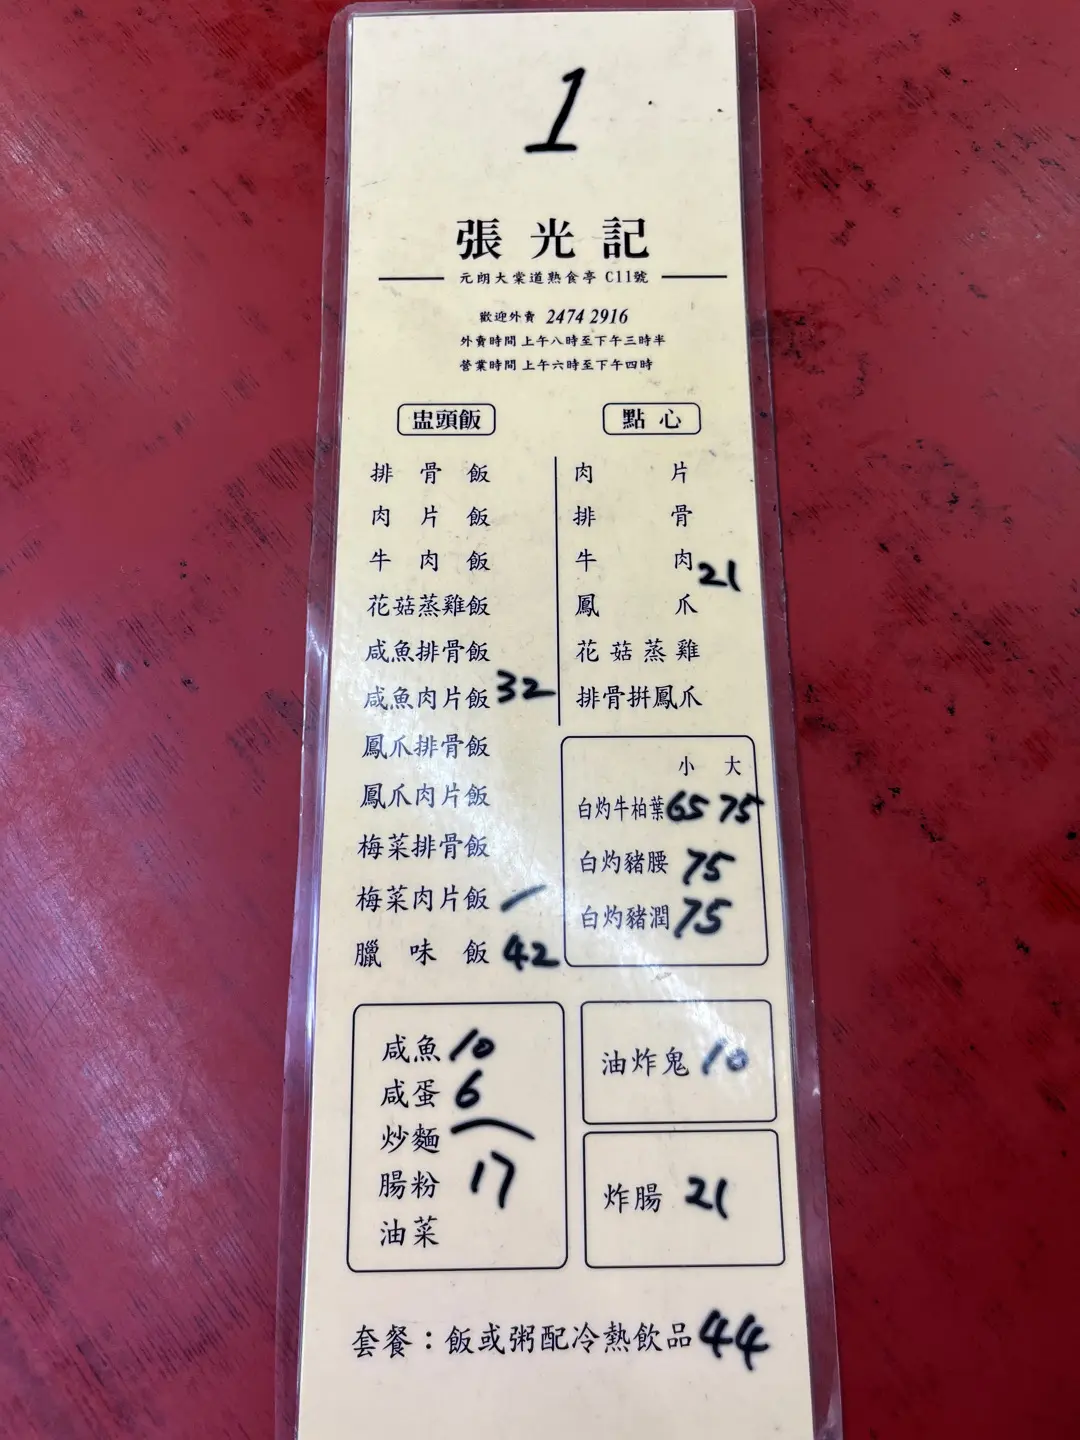 1
張光記
元朗大棠道熟食亭 C11號
歡迎外賣 2474 2916
外賣時間 上午八時至下午三時半
營業時間 上午六時至下午四時
盅頭飯
排骨飯
肉片飯
牛肉飯
花菇蒸雞飯
咸魚排骨飯
咸魚肉片飯 32
鳳爪排骨飯
鳳爪肉片飯
梅菜排骨飯
梅菜肉片飯
臘味飯 42
點心
肉片
排骨
牛肉 21
鳳爪
花菇蒸雞
排骨拼鳳爪
小 大
白灼牛柏葉 65 75
白灼豬腰 75
白灼豬潤 75
咸魚 10
咸蛋 6
炒麵
腸粉 17
油菜
油炸鬼 10
炸腸 21
套餐：飯或粥配冷熱飲品 44